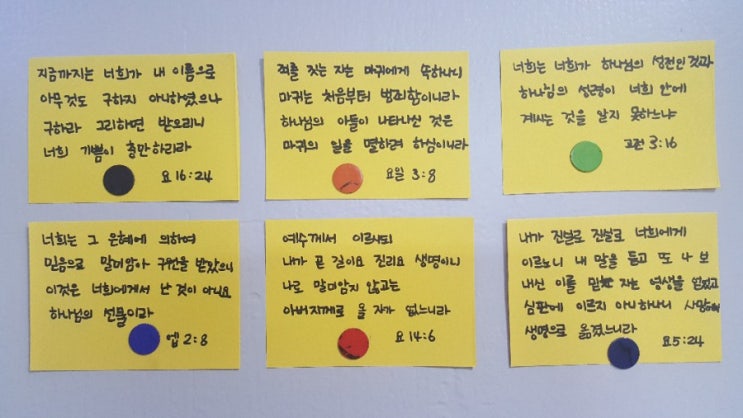 지금까지는 너희가 내 이름으로
아무것도 구하지 아니하였으나
구하라 그리하면 받으리니
너희 기쁨이 충만하리라
요 16:24
죄를 짓는 자는 마귀에게 속하나니
마귀는 처음부터 범죄함이니라
하나님의 아들이 나타나신 것은
마귀의 일을 멸하려 하심이니라
요일 3:8
너희는 너희가 하나님의 성전인 것과
하나님의 성령이 너희 안에
계시는 것을 알지 못하느냐
고전 3:16
너희는 그 은혜에 의하여
믿음으로 말미암아 구원을 받았으니
이것은 너희에게서 난 것이 아니요
하나님의 선물이라
엡 2:8
예수께서 이르시되
내가 곧 길이요 진리요 생명이니
나로 말미암지 않고는
아버지께로 올 자가 없느니라
요 14:6
내가 진실로 진실로 너희에게
이르노니 내 말을 듣고 또 나 보
내신 이를 믿는 자는 영생을 얻었고
심판에 이르지 아니하나니 사망에서
생명으로 옮겼느니라
요 5:24